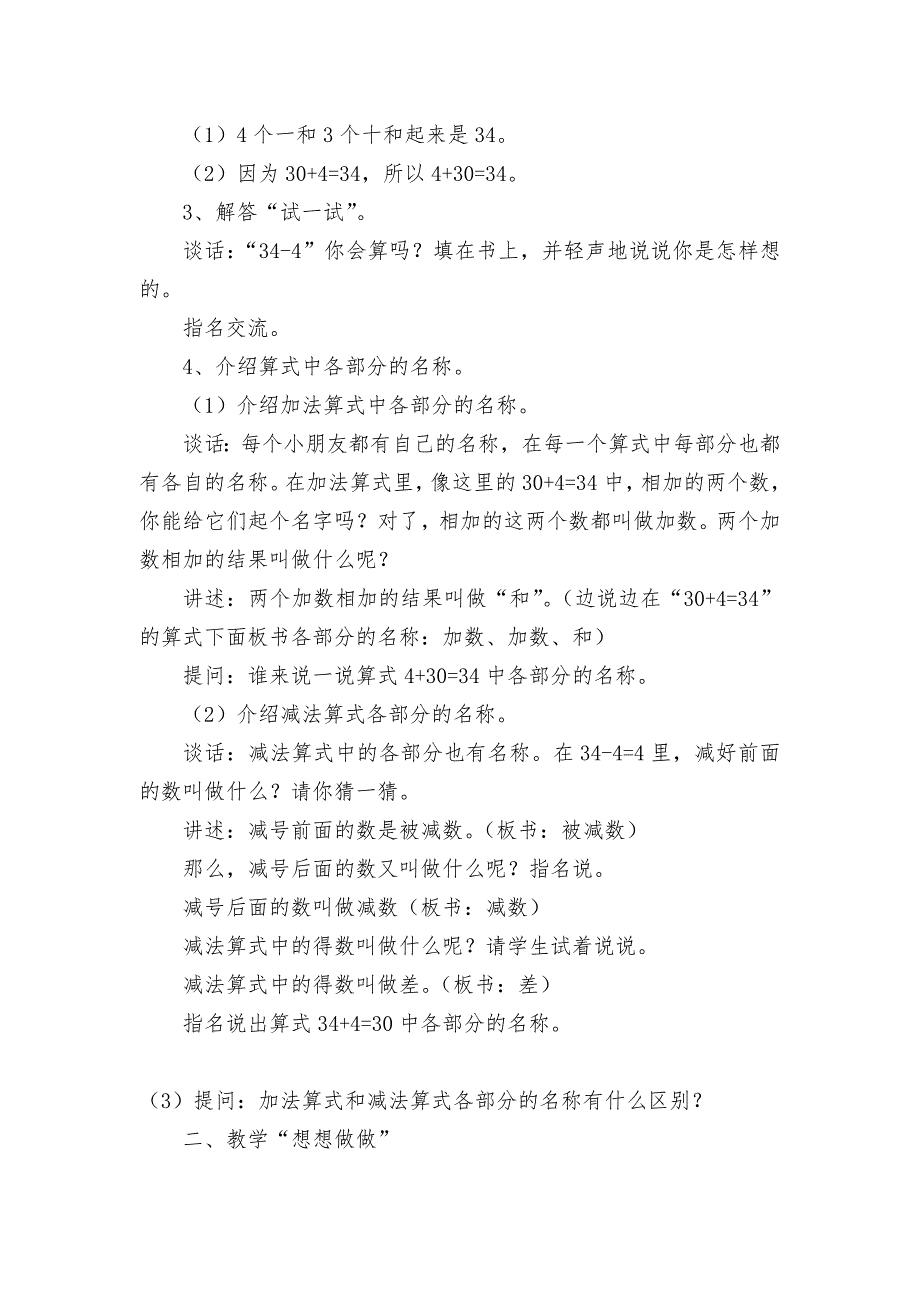 （1）4个一和3个十和起来是34。
（2）因为30+4=34，所以4+30=34。
3、解答“试一试”。
谈话：“34-4”你会算吗？填在书上，并轻声地说说你是怎样想
的。
指名交流。
4、介绍算式中各部分的名称。
（1）介绍加法算式中各部分的名称。
谈话：每个小朋友都有自己的名称，在每一个算式中每部分也都
有各自的名称。在加法算式里，像这里的30+4=34中，相加的两个数，
你能给它们起个名字吗？对了，相加的这两个数都叫做加数。两个加
数相加的结果叫做什么呢？
讲述：两个加数相加的结果叫做“和”。（边说边在“30+4=34”
的算式下面板书各部分的名称：加数、加数、和）
提问：谁来说一说算式4+30=34中各部分的名称。
（2）介绍减法算式各部分的名称。
谈话：减法算式中的各部分也有名称。在34-4=4里，减好前面
的数叫做什么？请你猜一猜。
讲述：减号前面的数是被减数。（板书：被减数）
那么，减号后面的数又叫做什么呢？指名说。
减号后面的数叫做减数（板书：减数）
减法算式中的得数叫做什么呢？请学生试着说说。
减法算式中的得数叫做差。（板书：差）
指名说出算式34+4=30中各部分的名称。
（3）提问：加法算式和减法算式各部分的名称有什么区别？
二、教学“想想做做”